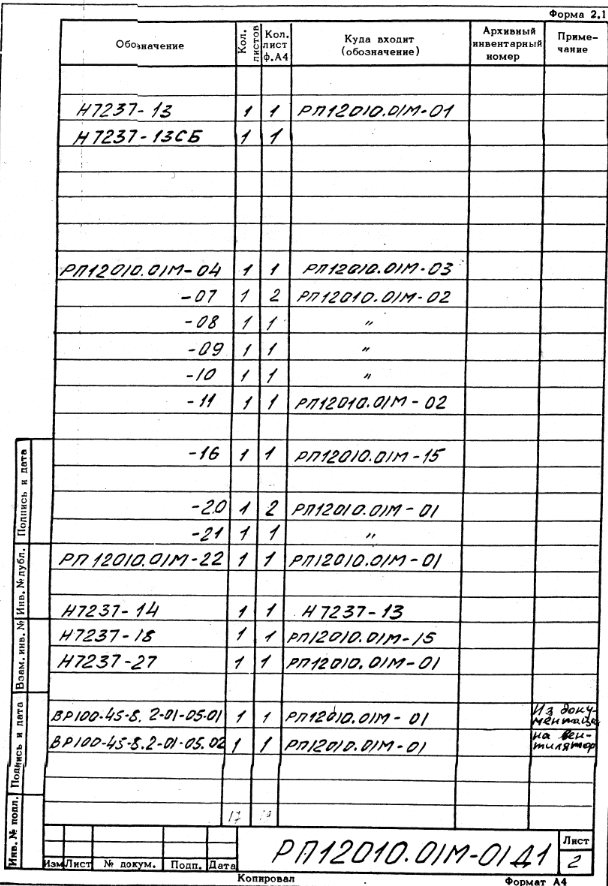 Форма 2.1
Обозначение Кол. листов Кол. лист ф.А4 Куда входит (обозначение) Архивный инвентарный номер Примечание
Н7237-13 1 1 РП12010.01М-01
Н7237-13СБ 1 1
РП12010.01М-04 1 1 РП12010.01М-03
-07 1 2 РП12010.01М-02
-08 1 1 "
-09 1 1 "
-10 1 1 "
-11 1 1 РП12010.01М-02
-16 1 1 РП12010.01М-15
-20 1 2 РП12010.01М-01
-21 1 1 "
РП12010.01М-22 1 1 РП12010.01М-01
Н7237-14 1 1 Н7237-13
Н7237-18 1 1 РП12010.01М-15
Н7237-27 1 1 РП12010.01М-01
ВР100-45-8.2-01-05.01 1 1 РП12010.01М-01 Из документации
ВР100-45-8.2-01-05.02 1 1 РП12010.01М-01 на вентилятор
17
РП12010.01М-01Д1
Лист
2
Изм Лист № докум. Подп. Дата
Копировал Формат А4
Подпись и дата
Инв. № дубл.
Взам. инв. №
Подпись и дата
Инв. № подл.